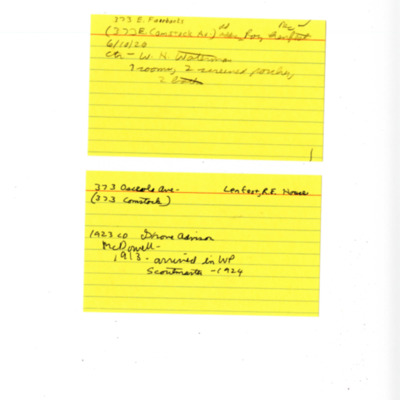 373 E. Fairbanks
(373 E. Comstock Ave.) Roy
6/10/20
W. N. Waterman
7 rooms, 2 screened porches,
2
373 Osceola Ave- Lenfest, R.F. House
(373 Comstock)
1923 CD Grove Advisor
McDowell-
1913 - arrived in WP
Scoutmaster - 1924